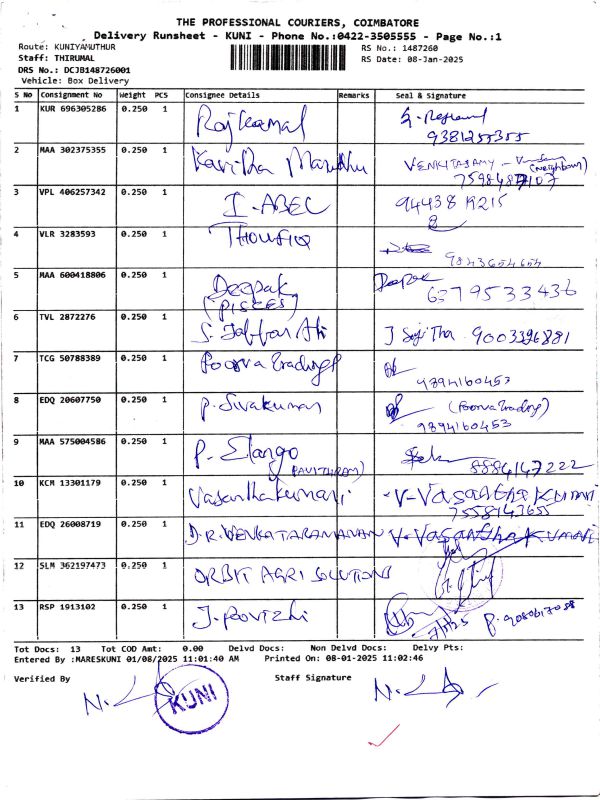 THE PROFESSIONAL COURIERS, COIMBATORE
Delivery Runsheet - KUNI - Phone No.:0422-3505555 - Page No.:1
Route: KUNIYAMUTHUR
RS No.: 1487260
Staff: THIRUMAL
RS Date: 08-Jan-2025
DRS No.: DCJB148726001
Vehicle: Box Delivery
S No Consignment No Weight PCS Consignee Details Remarks Seal & Signature
1 KUR 696305286 0.250 1 Rajkamal
9381255355
2 MAA 302375355 0.250 1 Kavitha VENKITASAMY (Neighbour)
3 VPL 406257342 0.250 1 I-ABEC 9443819215
4 VLR 3283593 0.250 1 THOUFIQ
9843654654
5 MAA 600418806 0.250 1 Deepak Deepak
(PISCES) 6379533436
6 TVL 2872276 0.250 1 S. Jabbar Ali 9003396881
7 TCG 50788389 0.250 1 Poorva Tradings
9894160453
8 EDQ 20607750 0.250 1 P. Sivakumar (Poorva Trading)
9894160453
9 MAA 575004586 0.250 1 P. Elango
(PAVITHRAM) 8884147222
10 KCM 13301179 0.250 1 Vasanthakumari V-VASANTHA KUMARI
7558143655
11 EDQ 26008719 0.250 1 D.R. VENKATARAMANAN V-VASANTHA KUMARI
12 SLM 362197473 0.250 1 ORBIT AGRI SOLUTIONS
13 RSP 1913102 0.250 1 J.
Tot Docs: 13 Tot COD Amt: 0.00 Delvd Docs: Non Delvd Docs: Delvy Pts:
Entered By :MARESKUNI 01/08/2025 11:01:40 AM Printed On: 08-01-2025 11:02:46
Verified By Staff Signature
KUNI